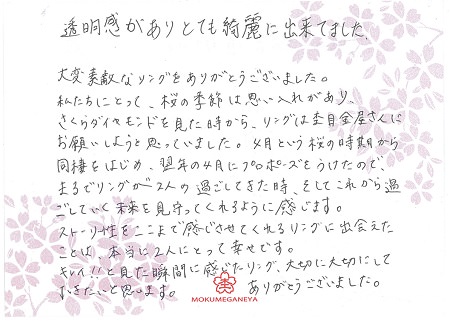 透明感がありとても綺麗に出来てました。
大変素敵なリングをありがとうございました。
私たちにとって、桜の季節は思い入れがあり、
さくらダイヤモンドを見た時から、リングは杢目金屋さんに
お願いしようと思っていました。4月という桜の時期から
同棲をはじめ、翌年の4月にプロポーズをうけたので、
まるでリングが2人の過ごしてきた時、そしてこれから過
ごしていく未来を見守ってくれるように感じます。
ストーリー性をここまで感じさせてくれるリングに出会えた
ことは、本当に2人にとって幸せです。
キレイ!!と見た瞬間に感じたリング、大切に大切にして
おきたいと思います。
ありがとうございました。
MOKUMEGANEYA